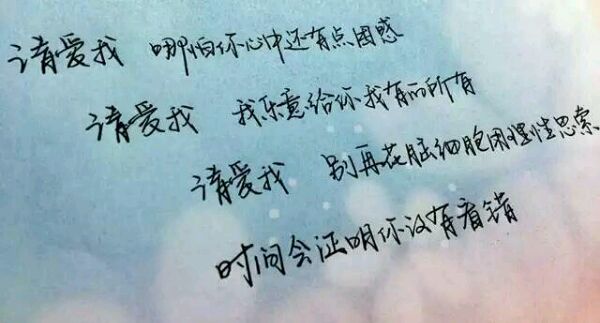 请爱我 哪怕你心中还有点困惑
请爱我 我乐意给你我有的所有
请爱我 别再花脑细胞用理性思索
时间会证明你没有看错